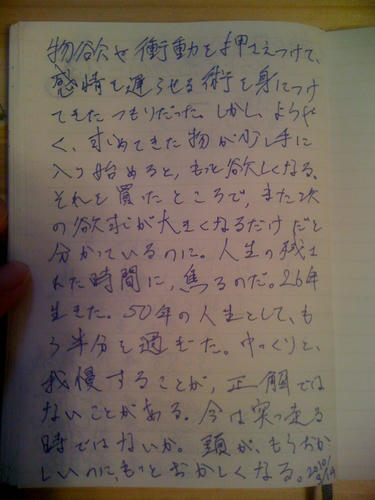 物欲や衝動を押えつけて、
感情を遅らせる術を身につけ
てきたつもりだった。しかし、ようや
く、求めてきた物が少し手に
入り始めると、もっと欲しくなる。
それを買ったところで、また次
の欲求が大きくなるだけだと
分かっているのに。人生の残さ
れた時間に、焦るのだ。26年
生きた。50年の人生として、も
う半分を過ぎた。ゆっくりと、
我慢することが、正解では
ないことがある。今は突っ走る
時ではないか。頭が、もうおか
しいのに、もっとおかしくなる。2010
3/14